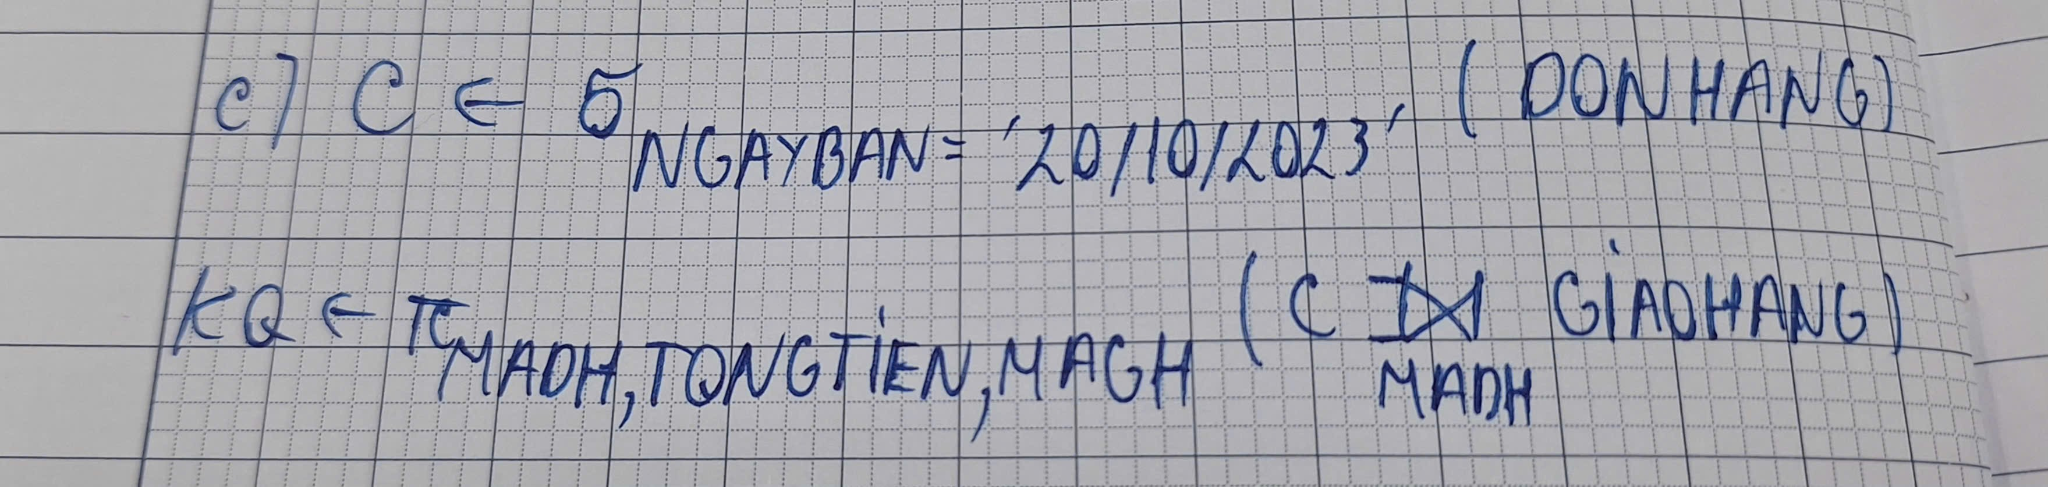 c) C ← σ NGAYBAN = '20/10/2023' (DONHANG)
KQ ← π MADH, TONGTIEN, MAGH (C ⟕ MADH GIAOHANG)